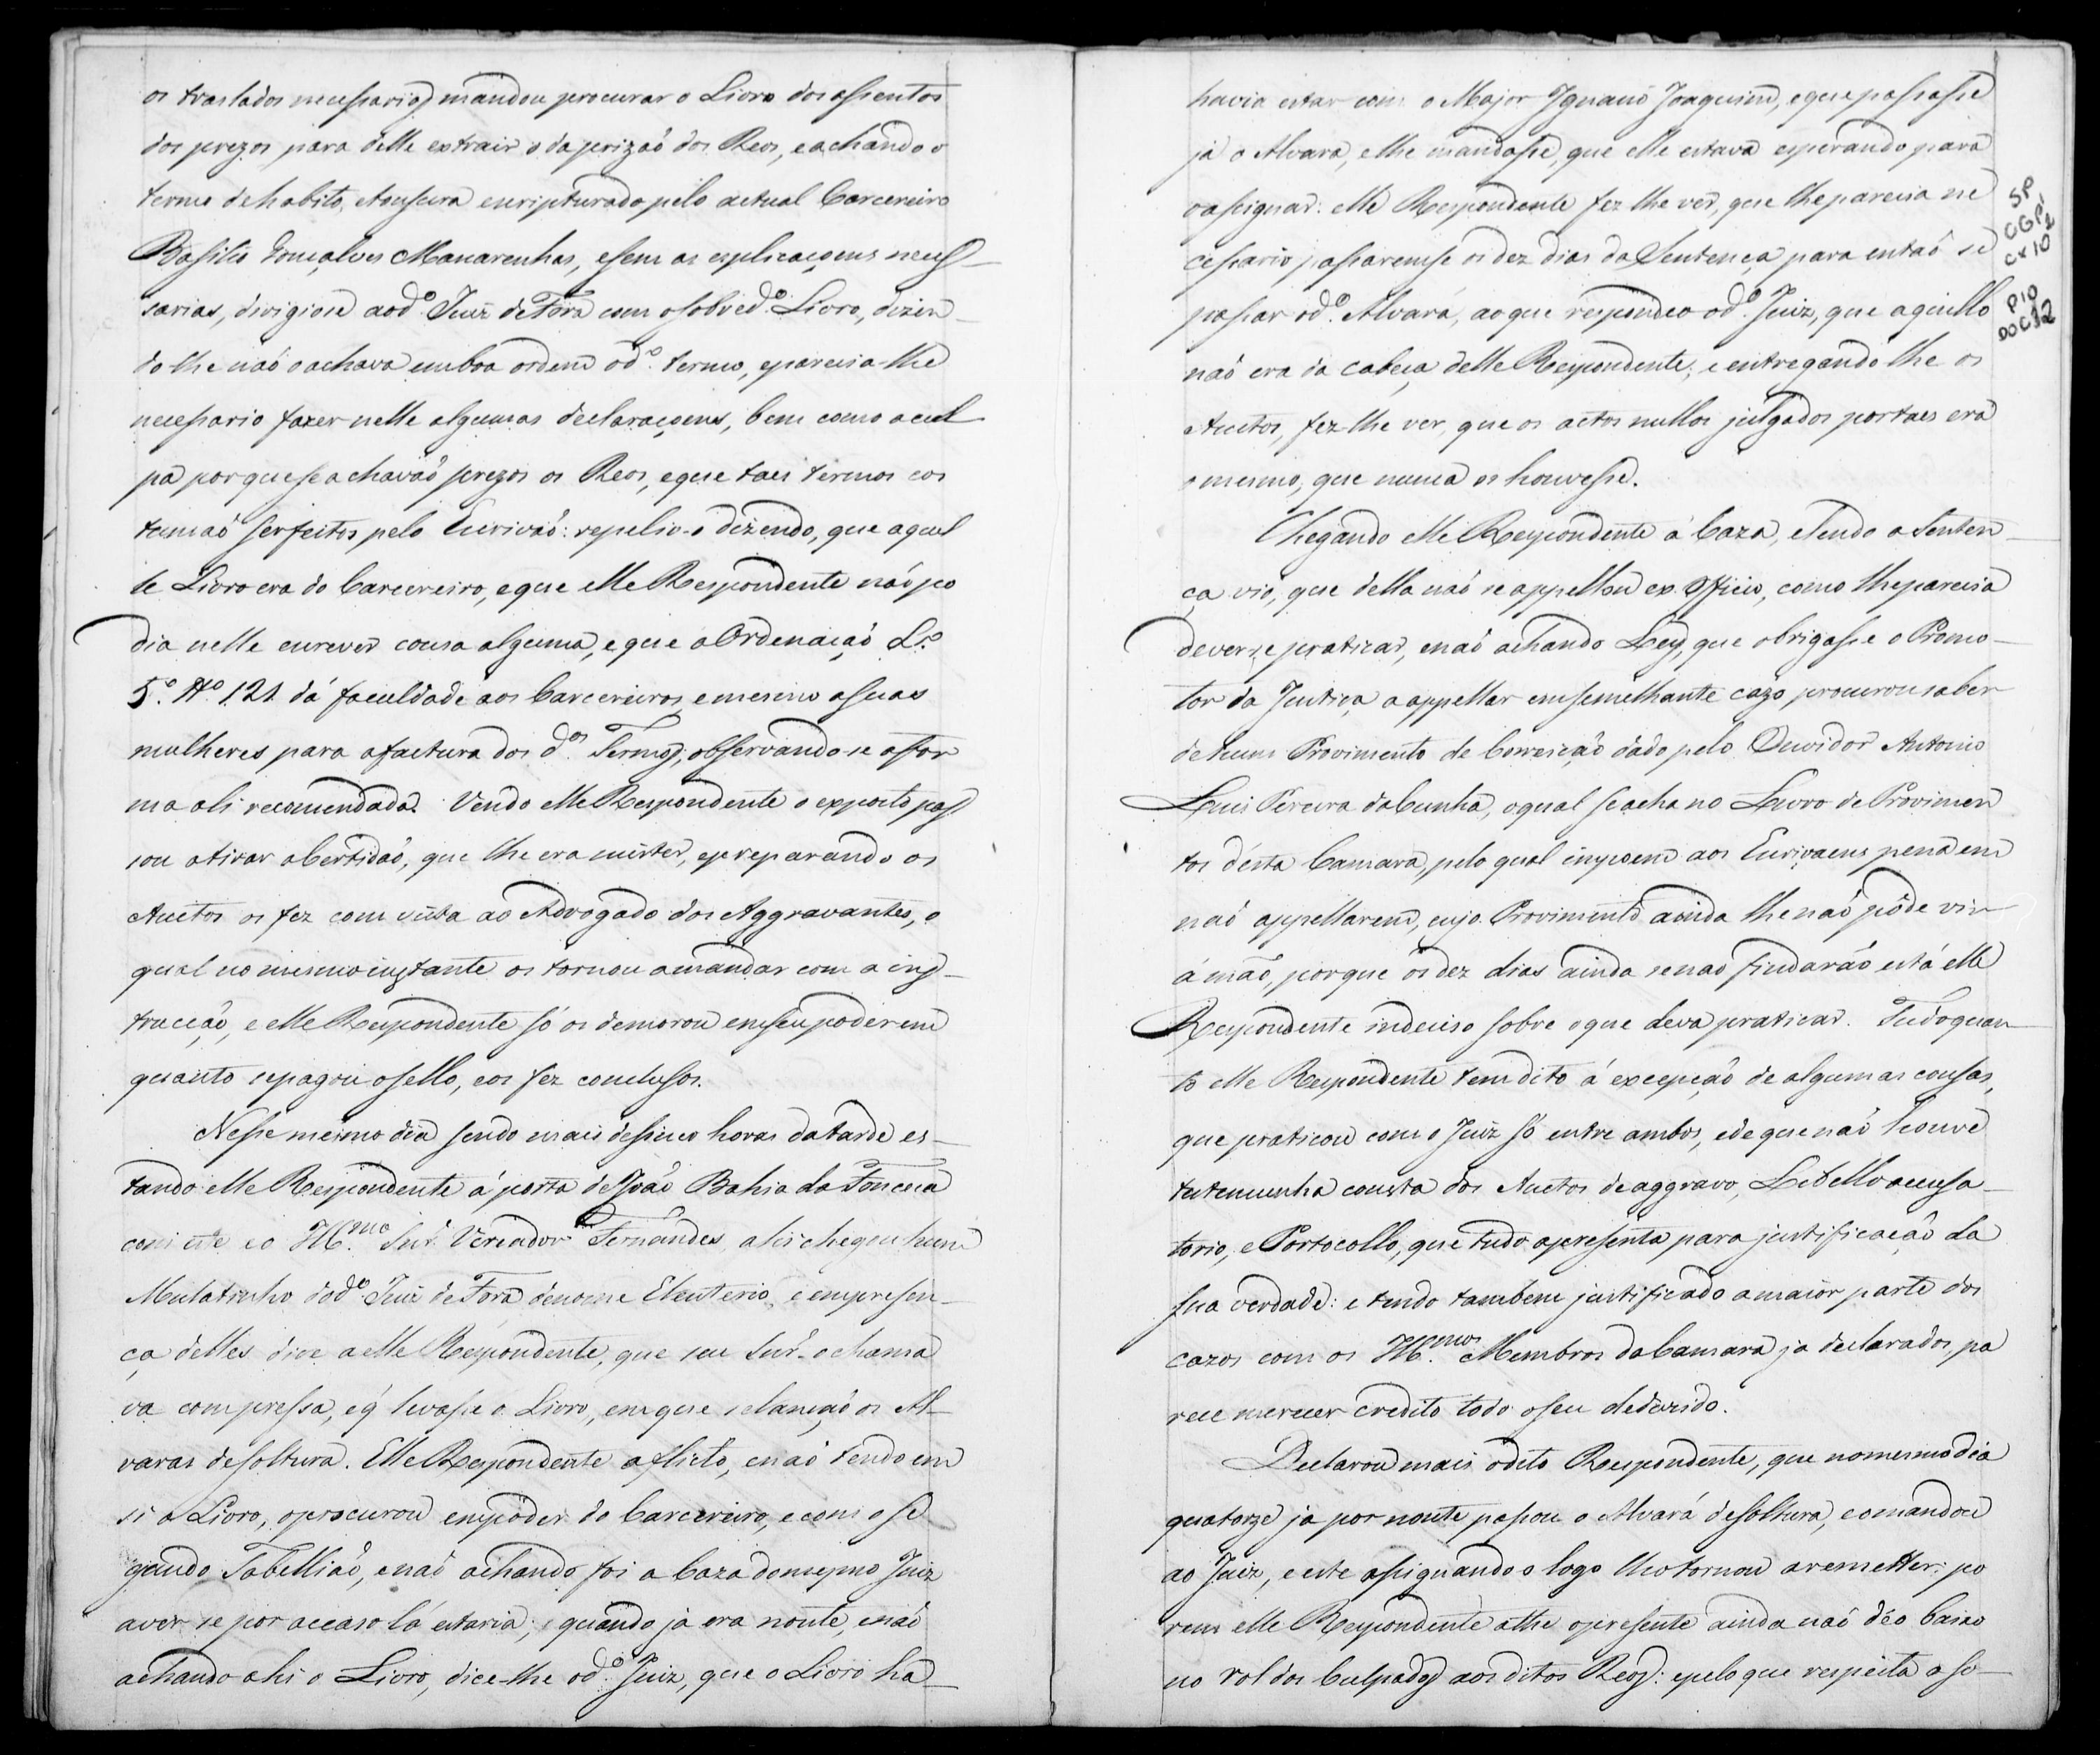 os traslados necessarios, mandou procurar o Livro dos assentos
dos prezos para delle extrair o da prizaõ dos Reos, e achando o
termo de habito, e tonsura escripturado pelo actual Carcereiro
Basilio Gonçalves Mascarenhas, e sem as explicaçoens neces-
sarias, dirigiose ao d.º Juiz de Fora com o sobred.º Livro, dizen-
do lhe naõ o achava em boa ordem o d.º termo, e parecia-lhe
necessario fazer nelle algumas declaraçoens, bem como a cul
pa porque se achavaõ prezos os Reos, e que taes termos cos
tumaõ ser feitos pelo Escrivaõ: repelio-o dizendo, que aquel
le Livro era do Carcereiro, e que elle Respondente naõ po
dia nelle escrever cousa alguma, e que a Ordenaçaõ L.º
5.º tt.º 121 dá faculdade aos Carcereiros, e mesmo a suas
mulheres para a factura dos d.os Termos, observando-se a for
ma ali recomendada. Vendo elle Respondente o exposto pas
sou a tirar a Certidaõ, que lhe era mister, e preparando os
Auctos os fez com vista ao Advogado dos Aggravantes, o
qual no mesmo instante os tornou a mandar com a ins-
trucçaõ, e elle Respondente só os demorou em seu poder em
quanto se pagou o sello, e os fez conclusos.
Nesse mesmo dia sendo mais de sinco horas da tarde es-
tando elle Respondente á porta de Joaõ Bahia da Fonceca
com este e o Ill.mo Snr. Vereador Fernandes, ahi chegou hum
Mulatinho do d.º Juiz de Fora de nome Eleuterio, e em presen-
ça delles dice a elle Respondente, que seu Snr. o chama
va com pressa, e q' levasse o Livro, em que se lançaõ os Al-
varas de soltura. Elle Respondente aflicto, e naõ tendo em
si o Livro, o procurou em poder do Carcereiro, e com o se
gundo Tabelliaõ, e naõ achando foi a Caza do mesmo Juiz
a ver se por accaso lá estaria; e quando ja era noute, e naõ
achando ahi o Livro, dice-lhe o d.º Juiz, que o Livro ha-
havia estar com o Major Ignacio Joaquim, e que passasse
já o Alvara, e lhe mandasse, que elle estava esperando para
o assignar: elle Respondente fez lhe ver, que lhe parecia ne
cessario passarem se os dez dias da Sentença para entaõ se
passar o d.º Alvará, ao que respondeo o d.º Juiz, que aquillo
naõ era da cabeça delle Respondente; e entregando lhe os
Auctos, fez-lhe ver, que os actos nullos julgados por taes era
o mesmo, que nunca os houvesse.
Chegando elle Respondente á Caza, e lendo a Senten-
ça vio, que della naõ se appellou ex Officio, como lhe parecia
dever se praticar, e naõ achando Ley, que obrigasse o Promo-
tor da Justiça a appellar em semelhante cazo, procurou saber
de hum Provimento de Correiçaõ dado pelo Ouvidor Antonio
Luis Pereira da Cunha, o qual se acha no Livro de Provimen
tos désta Camara, pelo qual impoem aos Escrivaens pena em
naõ appellarem, cujo Provimento ainda lhe naõ pôde vir
á maõ, porque os dez dias ainda se naõ findaraõ está elle
Respondente indeciso sobre o que deva praticar. Tudo quan-
to elle Respondente tem dito á excepçaõ de algumas cousas,
que praticou com o Juiz só entre ambos, e de que naõ houve
testemunha consta dos Auctos de aggravo, Libello accusa-
torio, e Portocollo, que tudo apresenta para justificaçaõ da
sua verdade: e tendo tambem justificado a maior parte dos
cazos com os Ill.mos Membros da Camara ja declarados, pa
rece merecer credito todo o seu deduzido.
Declarou mais o dito Respondente, que no mesmo dia
quatorze ja por noute passou o Alvará de soltura, e o mandou
ao Juiz, e este assignando-o logo lho tornou a remetter: po
rem elle Respondente athe o presente ainda naõ déo baixa
no rol dos Culpados aos ditos Reos: e pelo que respeita a so-
SP
CGP1
Cx 10
P10
DOC 12